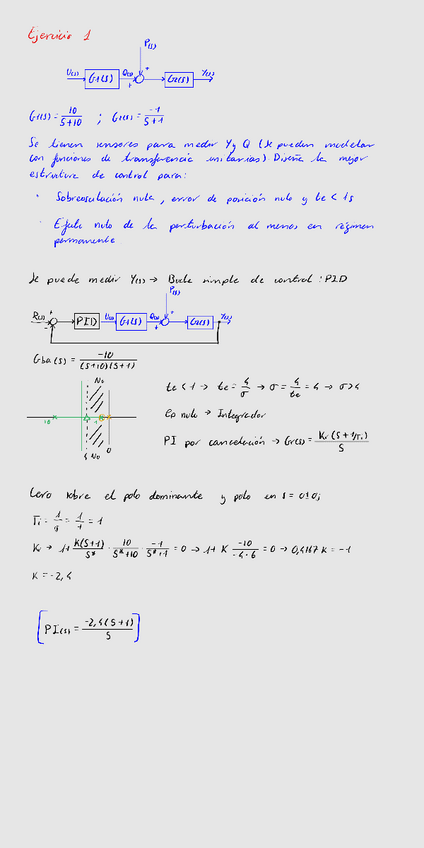 Ejercicio 1
P(s)
U(s) G1(s) Q(s) + + G2(s) Y(s)
G1(s) = 10/(s+10) ; G2(s) = -1/(s+1)
Se tienen sensores para medir Y y Q (se pueden modelar
con funciones de transferencia unitarias). Diseña la mejor
estructura de control para:
· Sobreoscilación nula, error de posición nulo y te < 1s
· Efecto nulo de la perturbación al menos en régimen
permanente
Se puede medir Y(s) → Bucle simple de control: PID
P(s)
R(s) + - PID U(s) G1(s) Q(s) + + G2(s) Y(s)
Gba(s) = -10/((s+10)(s+1))
No
te < 1 → te = 4/σ → σ = 4/te = 4 → σ > 4
ep nulo → Integrador
PI por cancelación → Gr(s) = Kr(s + 1/Ti)/s
-10 -1
4 No 0
Cero sobre el polo dominante y polo en s = 0:
Ti = 1/a = 1/1 = 1
Kr → 1 + K(s+1)/s* · 10/(s*+10) · -1/(s*+1) = 0 → 1 + K -10/(-4·6) = 0 → 0,4167 K = -1
K = -2,4
[PI(s) = -2,4(s+1)/s]